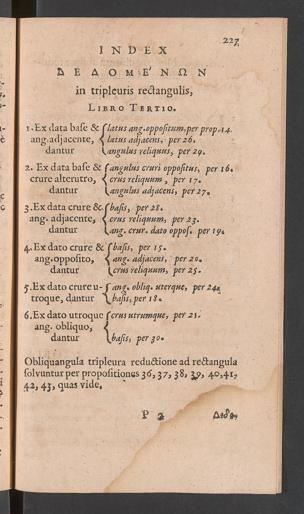 227
INDEX
ΔΕΔΟΜΕ΄ΝΩΝ
in tripleuris rectangulis,
LIBRO TERTIO.
1. Ex data base & latus ang. oppositum, per prop. 14.
ang. adjacente, latus adjacens, per 26.
dantur angulus reliquus, per 29.
2. Ex data base & angulus cruri oppositus, per 16.
crure alterutro, crus reliquum, per 17.
dantur angulus adjacens, per 27.
3. Ex data crure & basis, per 28.
ang. adjacente, crus reliquum, per 23.
dantur ang. crur. dato oppos. per 19.
4. Ex dato crure & basis, per 15.
ang. opposito, ang. adjacens, per 20.
dantur crus reliquum, per 25.
5. Ex dato crure u- ang. obliq. uterque, per 24.
troque, dantur basis, per 18.
6. Ex dato utroque crus utrumque, per 21.
ang. obliquo,
dantur basis, per 30.
Obliquangula tripleura reductione ad rectangula
solvuntur per propositiones 36, 37, 38, 39, 40, 41,
42, 43, quas vide.
P 2